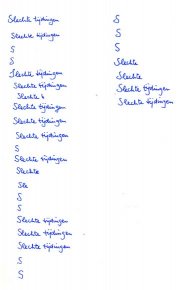 Slechte tijdingen
Slechte tijdingen
S
S
Slechte tijdingen
Slechte tijdingen
Slechte t
Slechte tijdingen
Slechte tijdingen
Slechte tijdingen
S
Slechte tijdingen
Slechte
Sle
S
S
Slechte tijdingen
Slechte tijdingen
Slechte tijdingen
S
S
S
S
S
Slechte
Slechte
Slechte tijdingen
Slechte tijdingen